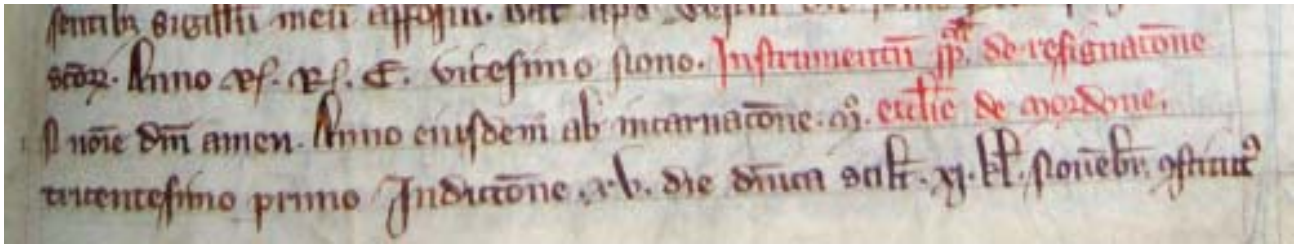 sentib; sigillū meū apposui. Dat
scōꝝ. Anno R̃. R̃. E. vicesimo nono. Instrumentū de resignatōne
In noīe dn̄i amen. Anno eiusdem ab incarnatōne. M°. ecclīe de mordone.
tricentesimo primo Indictōne. xv. die dn̄ica scilt. xj. kl. Novēbr. ꝯstitut᷒